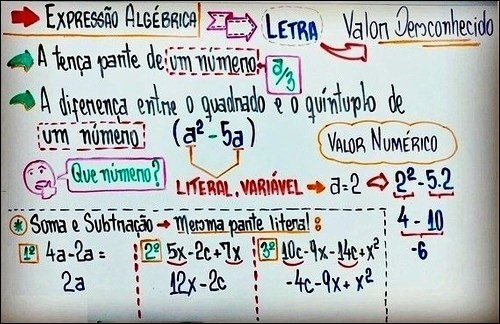 EXPRESSÃO ALGÉBRICA LETRA Valor Desconhecido
A terça parte de um número a/3
A diferença entre o quadrado e o quíntuplo de
um número (a²-5a) VALOR NUMÉRICO
Que número? LITERAL, VARIÁVEL a=2 2²-5.2
4-10
-6
* Soma e Subtração → Mesma parte literal:
1º 4a-2a=
2a
2º 5x-2c+7x
12x-2c
3º 10c-9x-14c+x²
-4c-9x+x²